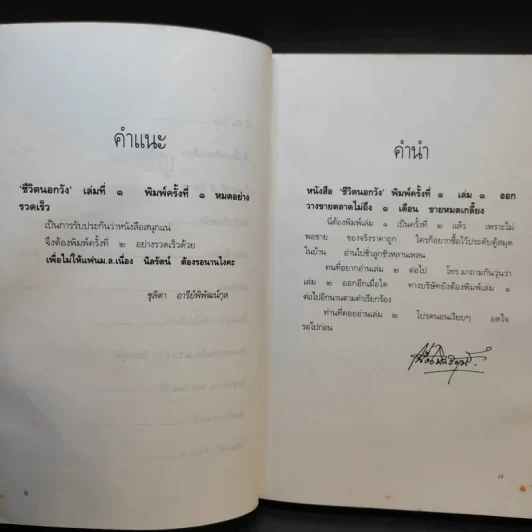 คำแนะ
'ชีวิตนอกวัง' เล่มที่ ๑ พิมพ์ครั้งที่ ๑ หมดอย่าง
รวดเร็ว
เป็นการรับประกันว่าหนังสือสนุกแน่
จึงต้องพิมพ์ครั้งที่ ๒ อย่างรวดเร็วด้วย
เพื่อไม่ให้แฟนม.ล.เนื่อง นิลรัตน์ ต้องรอนานไงคะ
ชุลิตา อารีย์พิพัฒน์กุล
๖
คำนำ
หนังสือ 'ชีวิตนอกวัง' พิมพ์ครั้งที่ ๑ เล่ม ๑ ออก
วางขายตลาดไม่ถึง ๑ เดือน ขายหมดเกลี้ยง
นี่ต้องพิมพ์เล่ม ๑ เป็นครั้งที่ ๒ แล้ว เพราะไม่
พอขาย ของจริงราคาถูก ใครก็อยากซื้อไว้ประดับตู้สมุด
ในบ้าน อ่านไปชั่วลูกชั่วหลานเหลน
คนที่อยากอ่านเล่ม ๒ ต่อไป โทร.มาถามกันวุ่นว่า
เล่ม ๒ ออกอีกเมื่อใด ทางบริษัทยังต้องพิมพ์เล่ม ๑
ต่อไปอีกนานตามคำเรียกร้อง
ท่านที่คอยอ่านเล่ม ๒ โปรดนอนเงียบๆ อดใจ
รอไปก่อน
๗